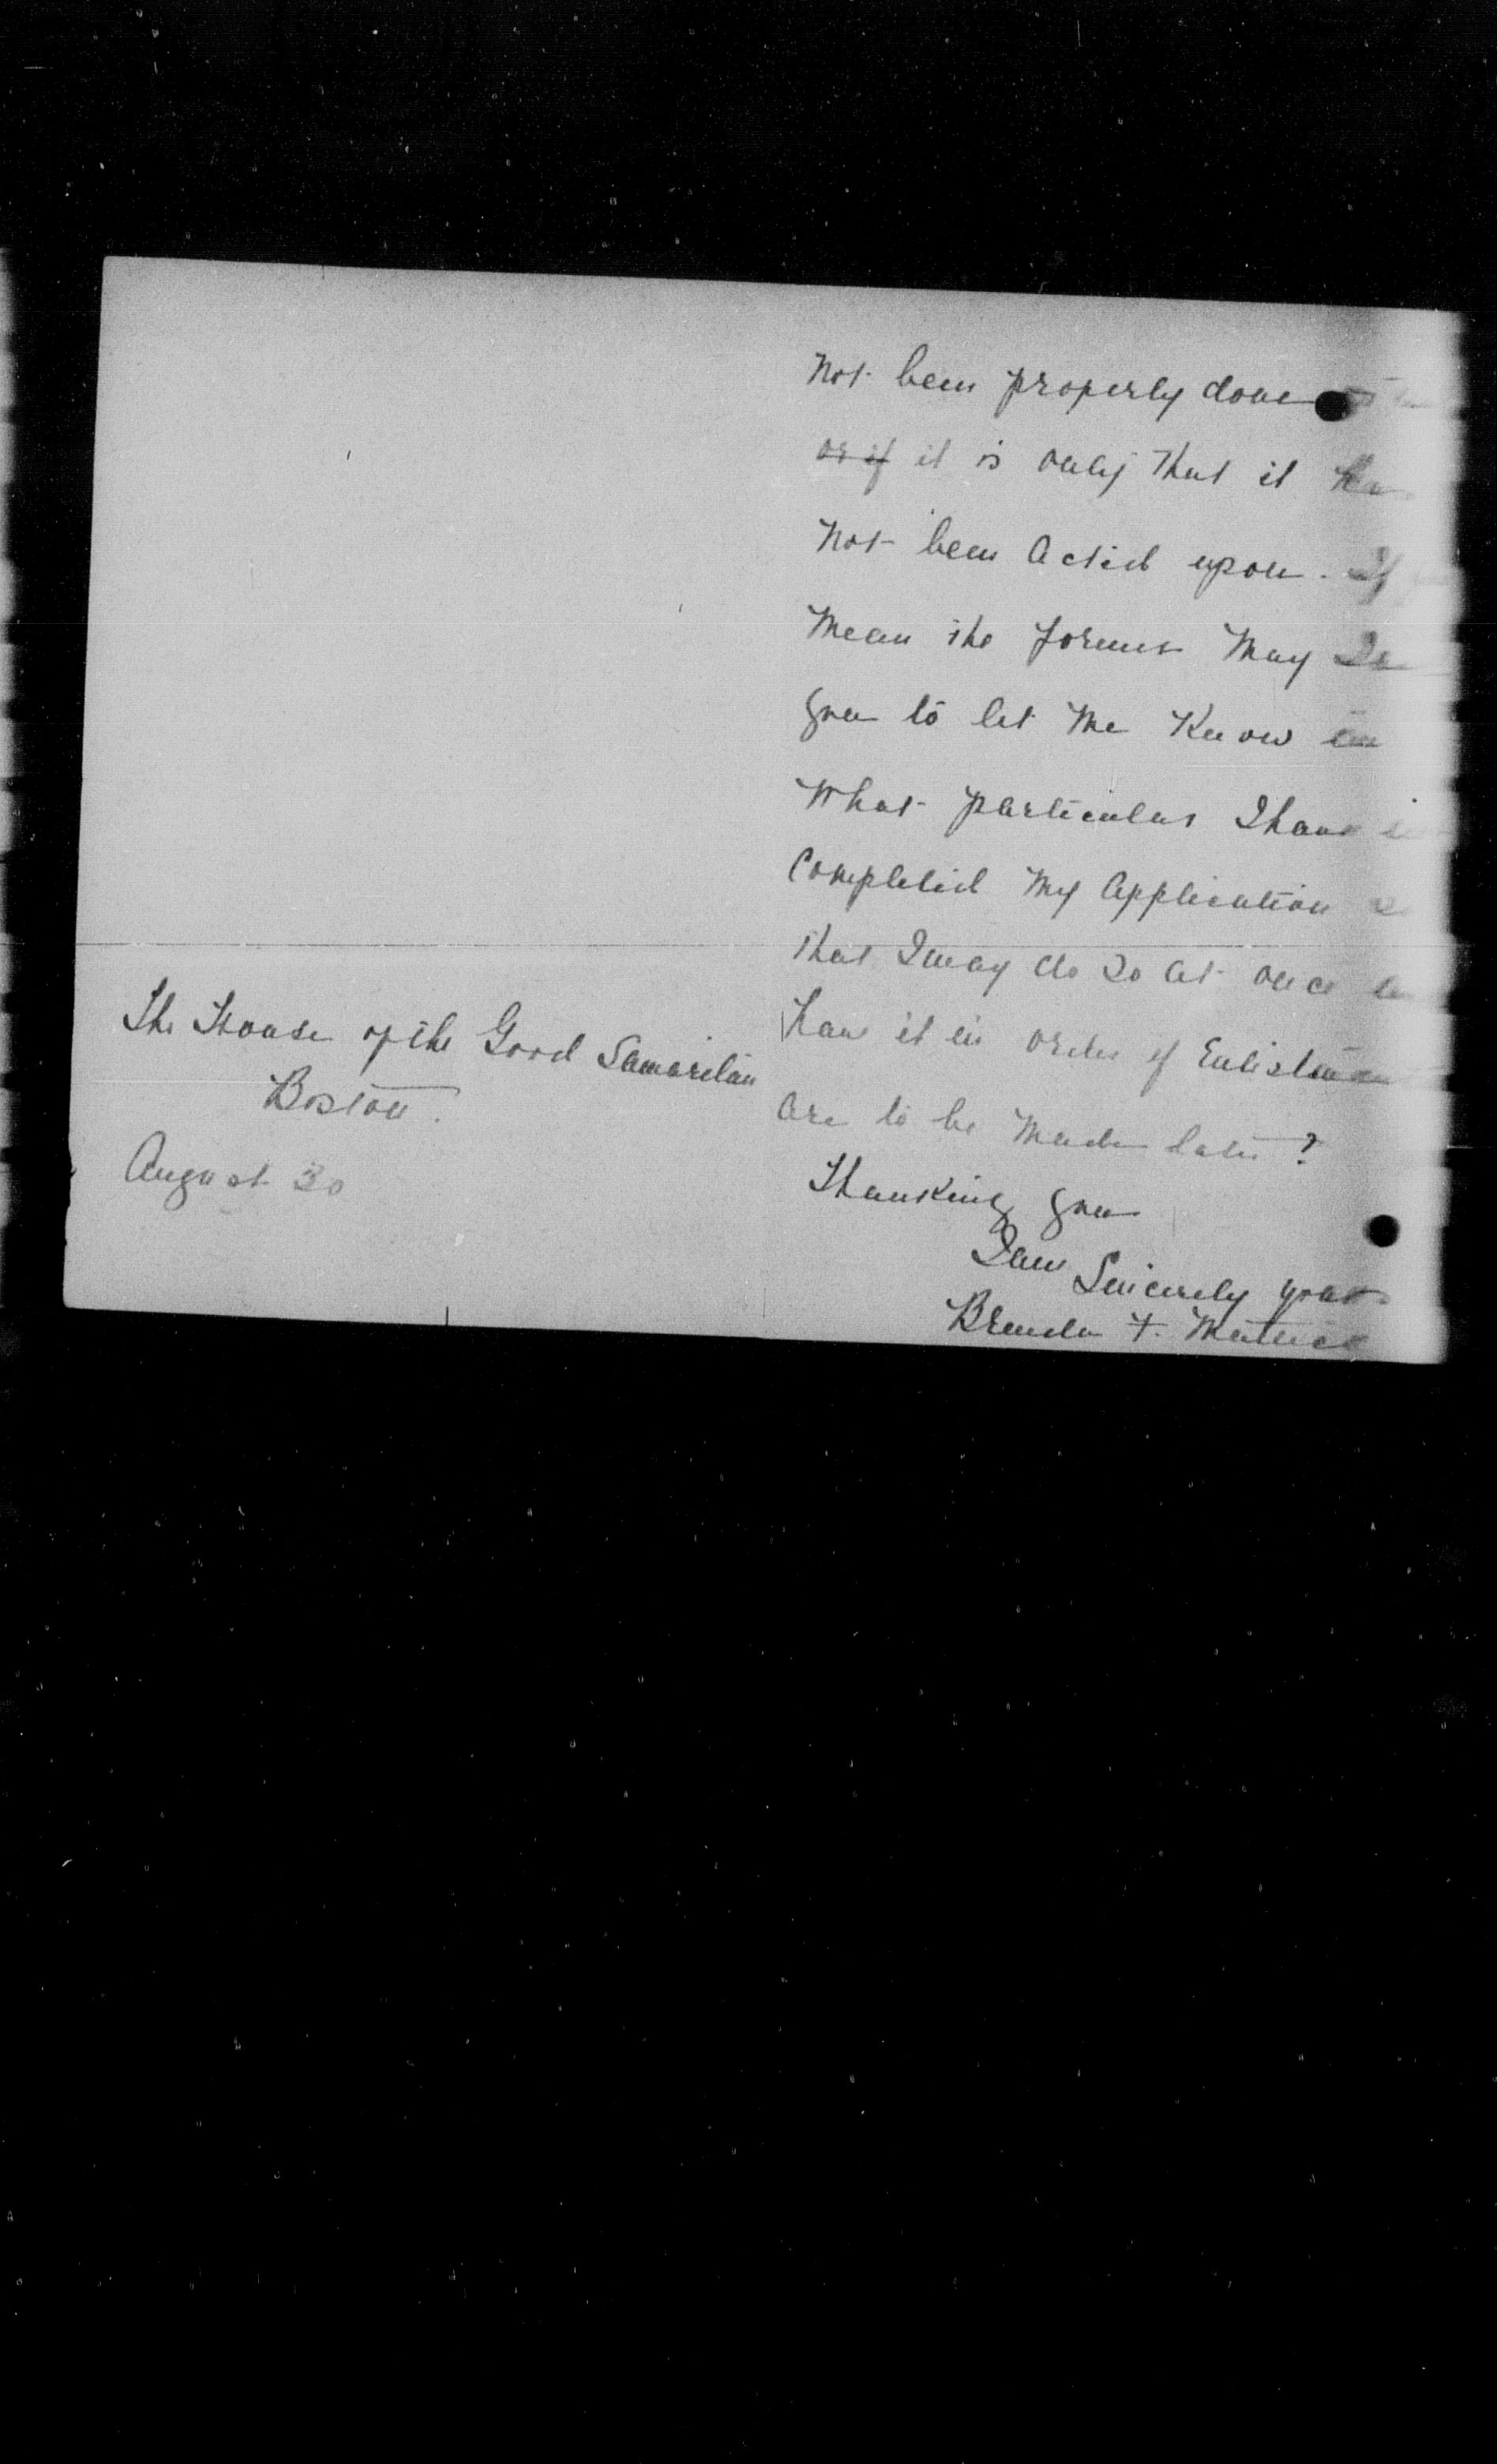 not been properly done
or if it is only that it
not been acted upon. If
mean the former may I
you to let me know in
what particular I have
completed my application
that I may do so at once
have it in order if Enlistmen
are to be made later?
Thanking you
I am Sincerely yours
Brenda F.
The House of the Good Samaritan
Boston.
August 30